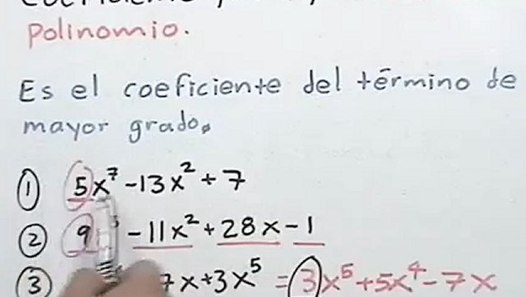 polinomio.
Es el coeficiente del término de
mayor grado.
① 5x⁷ -13x² + 7
② 9 -11x² + 28x - 1
③ 7x + 3x⁵ = 3x⁵ + 5x⁴ - 7x